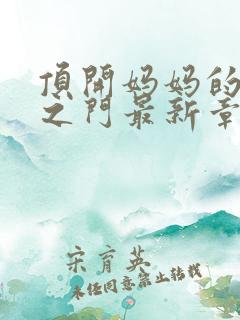 頂開妈妈的
之门最新章
宋育英
未经同意禁止转载